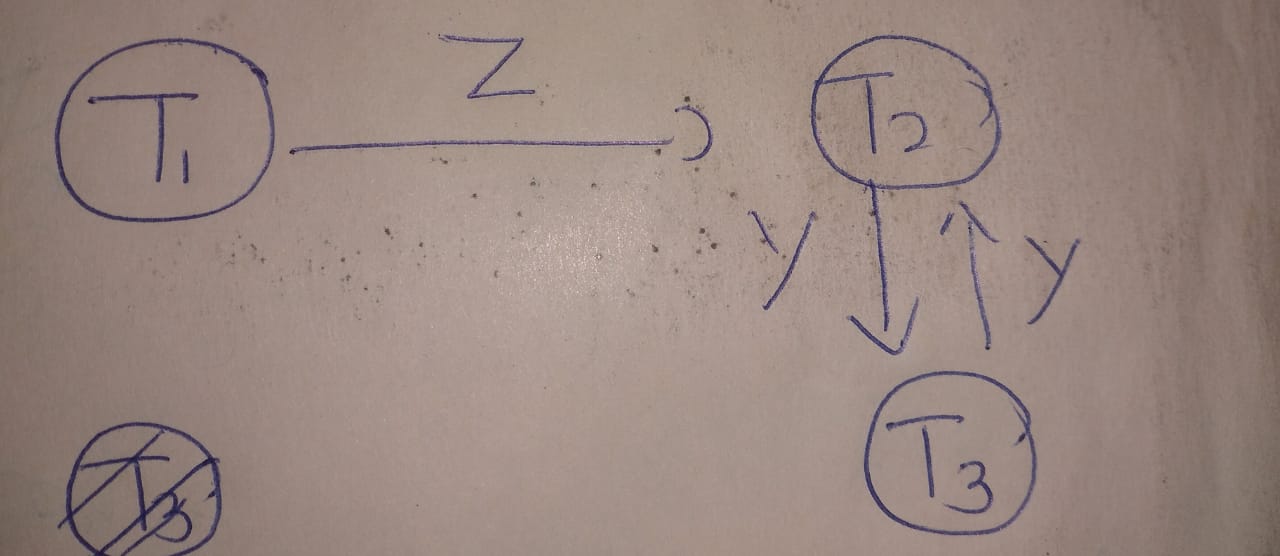 Z
T1 T2
y y
T3
T3